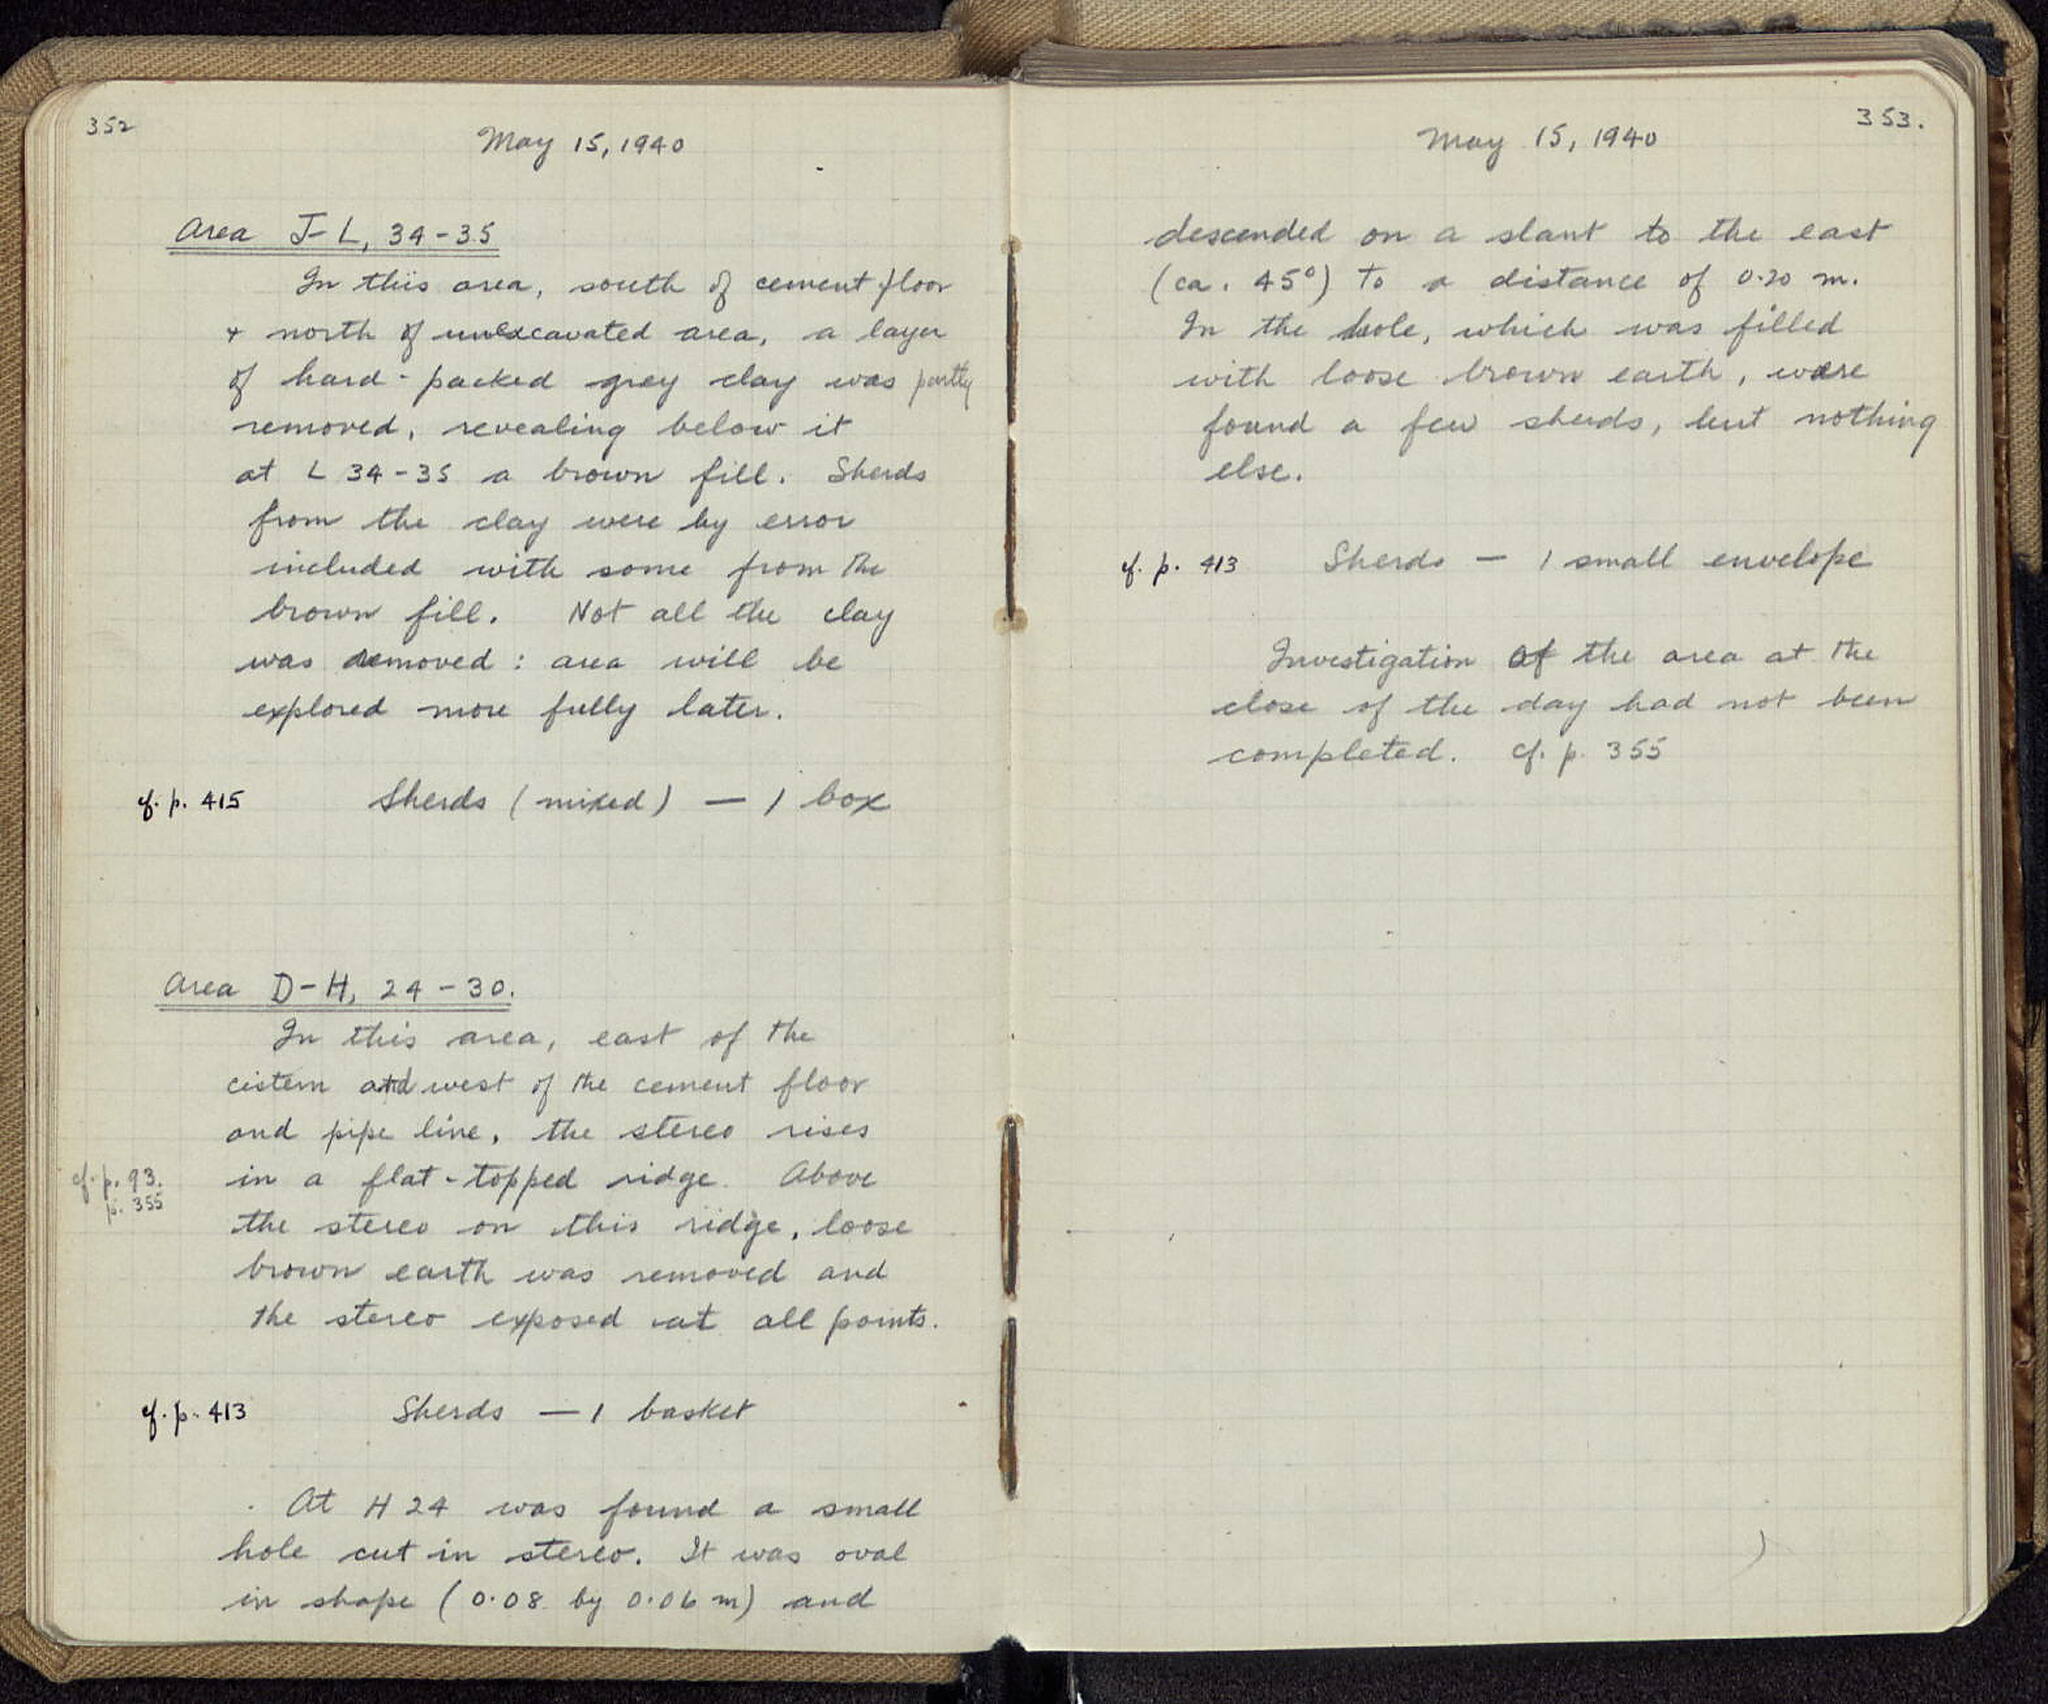 352
May 15, 1940
Area J-L, 34-35
In this area, south of cement floor
+ north of unexcavated area, a layer
of hard-packed grey clay was partly
removed, revealing below it
at L 34-35 a brown fill. Sherds
from the clay were by error
included with some from the
brown fill. Not all the clay
was removed: area will be
explored more fully later.
cf. p. 415 Sherds (mixed) — 1 box
Area D-H, 24-30.
In this area, east of the
cistern and west of the cement floor
and pipe line, the stereo rises
cf. p. 93. in a flat-topped ridge. Above
p. 355
the stereo on this ridge, loose
brown earth was removed and
the stereo exposed at all points.
cf. p. 413 Sherds — 1 basket
At H 24 was found a small
hole cut in stereo. It was oval
in shape (0.08 by 0.06 m) and
353.
May 15, 1940
descended on a slant to the east
(ca. 45°) to a distance of 0.20 m.
In the hole, which was filled
with loose brown earth, were
found a few sherds, but nothing
else.
cf. p. 413 Sherds — 1 small envelope
Investigation of the area at the
close of the day had not been
completed. cf. p. 355